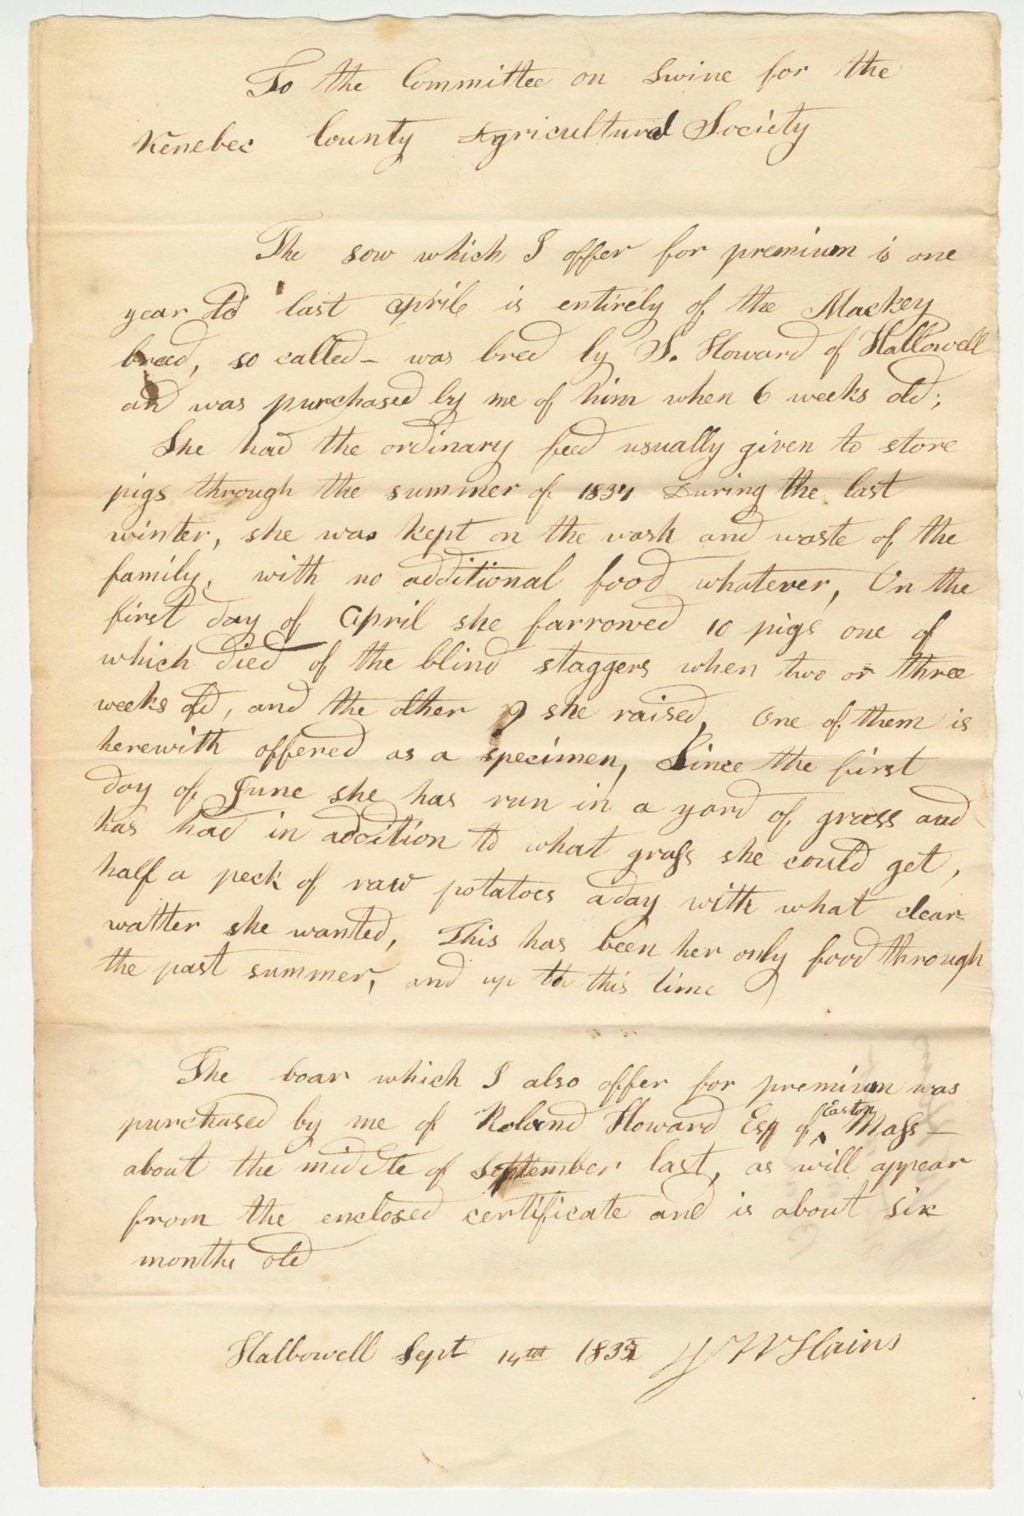 To the Committee on Swine for the
Kenebec County Agricultural Society
The sow which I offer for premium is one
year old last April is entirely of the Mackey
breed, so called - was bred by S. Howard of Hallowell
and was purchased by me of him when 6 weeks old;
She had the ordinary feed usually given to store
pigs through the summer of 1831 During the last
winter, she was kept on the wash and waste of the
family, with no additional food whatever, On the
first day of April she farrowed 10 pigs one of
which died of the blind staggers when two or three
weeks old, and the other 9 she raised, One of them is
herewith offered as a specimen, Since the first
day of June she has run in a yard of grass and
has had in addition to what grass she could get,
half a peck of raw potatoes a day with what clear
watter she wanted, This has been her only food through
the past summer, and up to this time
The boar which I also offer for premium was
purchased by me of Roland Howard Esq of Easton Mass -
about the middle of September last, as will appear
from the enclosed certificate and is about six
months old
Hallowell Sept 14th J W Hains